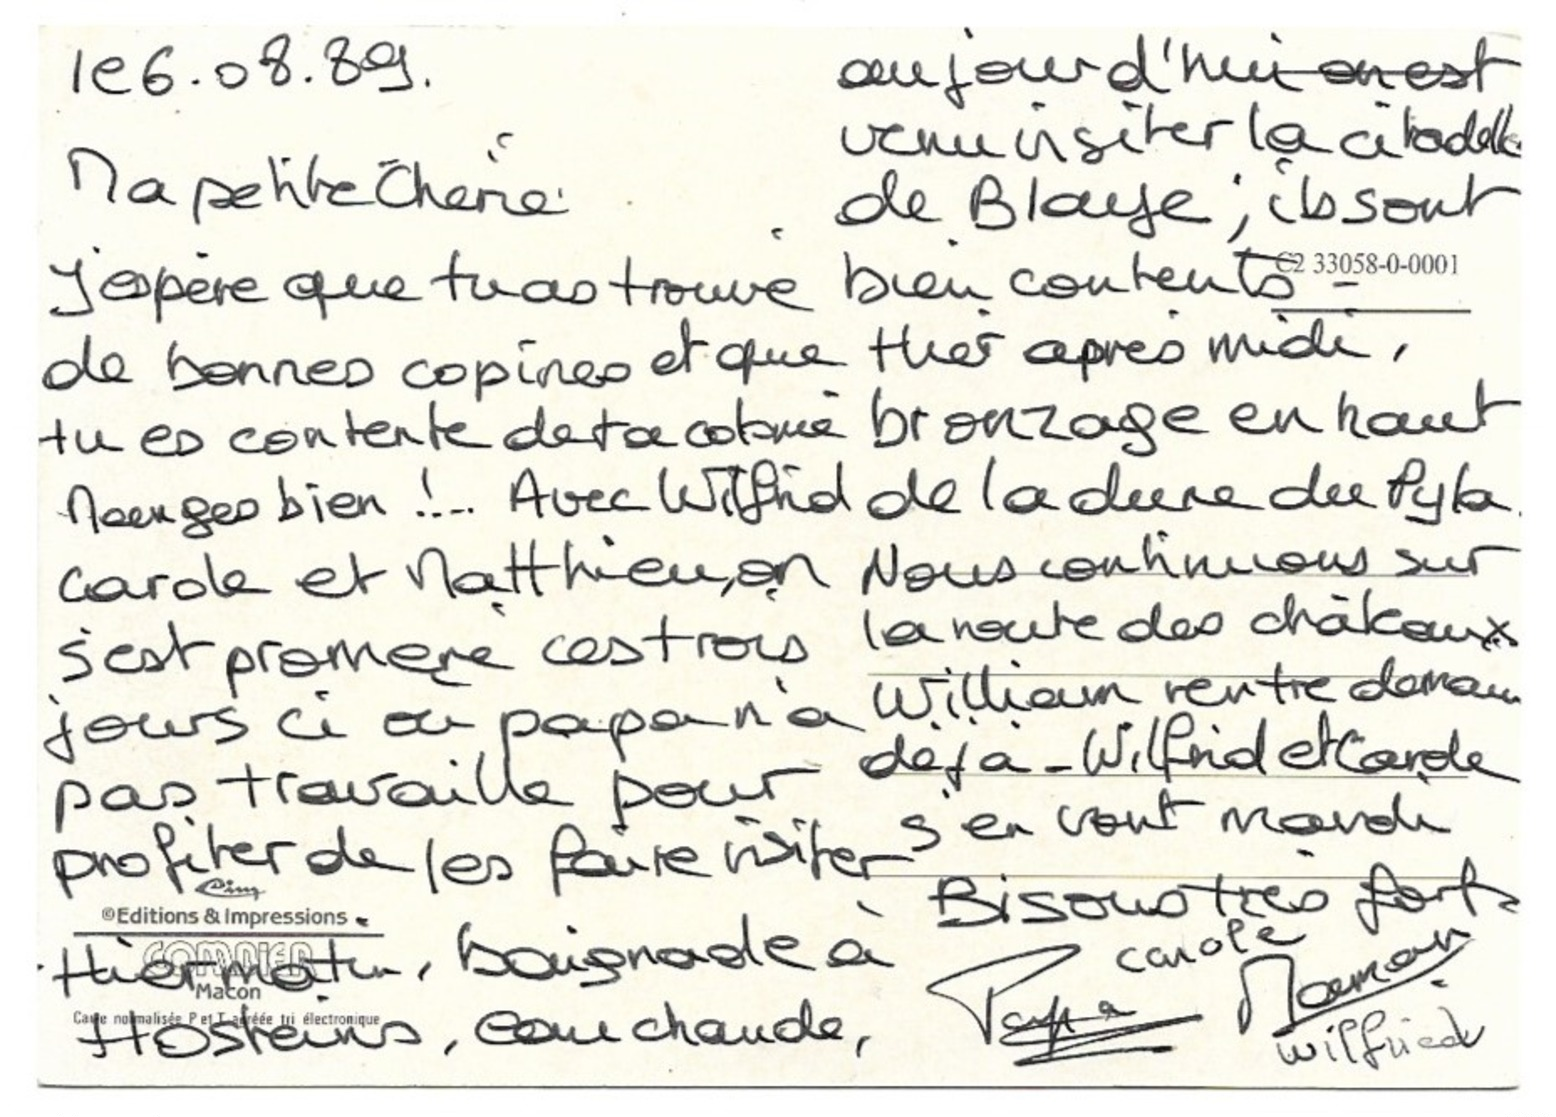 le 6.08.89.
Ma petite Chérie
J'espère que tu as trouvé
de bonnes copines et que
tu es contente de ta colonie
Manges bien !... Avec Wilfrid
Carole et Matthieu, on
s'est promené ces trois
jours ci où papa n'a
pas travaillé pour
profiter de les faire visiter
Cim
©Editions & Impressions
COMBIER
Macon
Carte normalisée P et T agréée tri électronique
Hier matin, baignade à
Hosteins, eau chaude,
aujourd'hui on est
venu visiter la citadelle
de Blaye ; ils sont
bien contents -
C2 33058-0-0001
Hier après midi,
bronzage en haut
de la dune du Pyla.
Nous continuons sur
la route des châteaux
William rentre demain
déjà - Wilfrid et Carole
s'en vont mardi
Bisous très forts
Carole
Papa
Maman
Wilfried